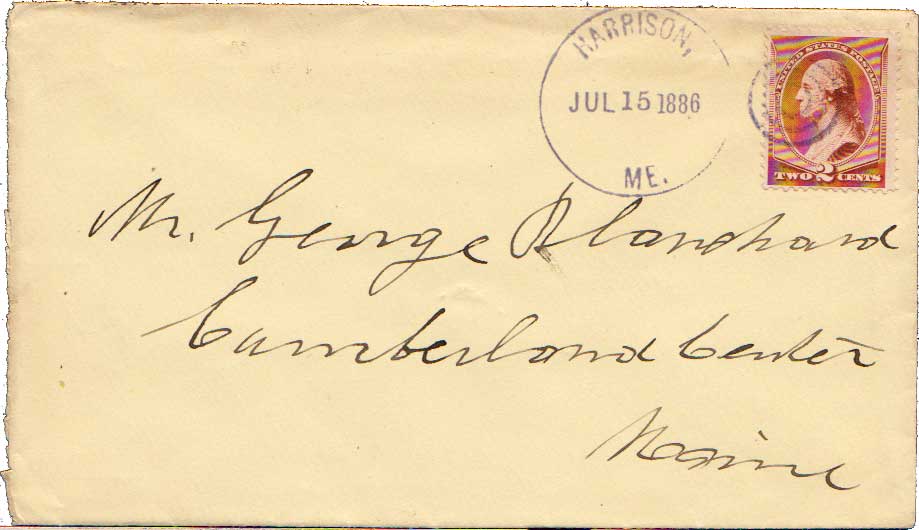 HARRISON,
JUL 15 1886
ME.
UNITED STATES POSTAGE
TWO 2 CENTS
Mr. George Blanchard
Cumberland Center
Maine